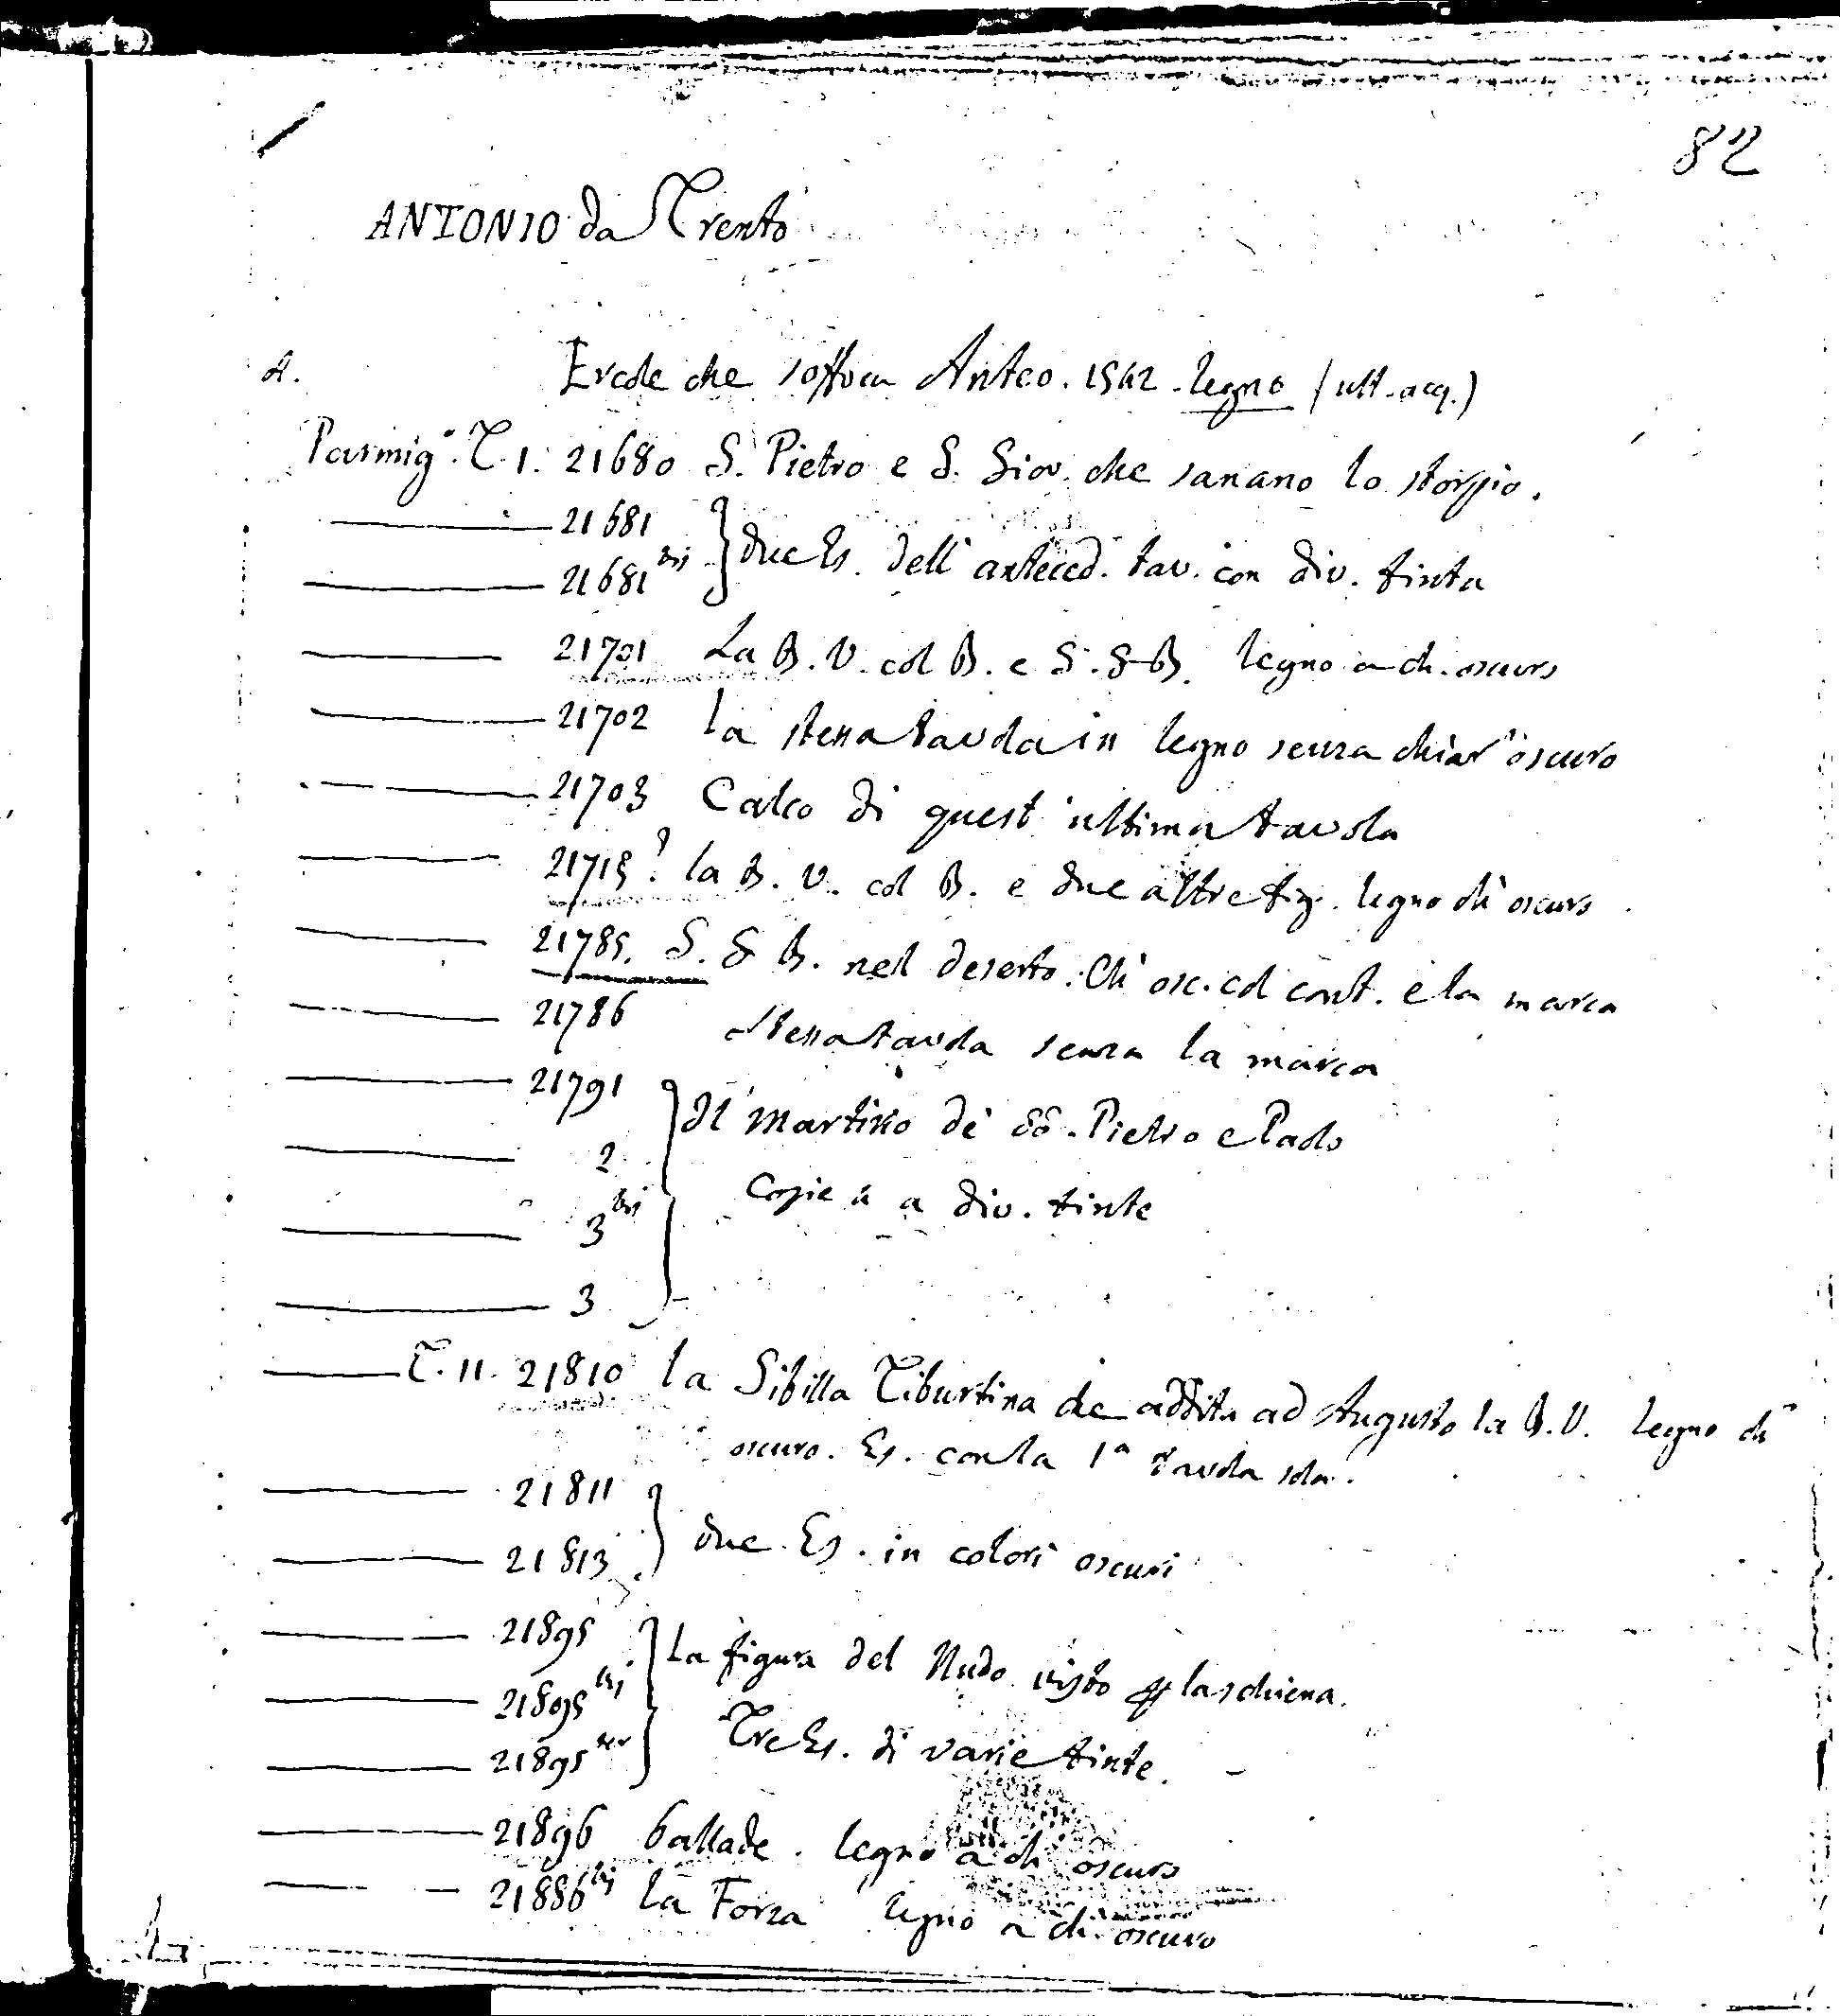 82
ANTONIO da Trento
A. Ercole che soffoca Anteo. 1542 - legno (ult. acq.)
Parmig.° T. 1. 21680 S. Pietro e S. Giov. che sanano lo storpio.
21681
21681 bis } due Es. dell'anteced. tav. con div. tinta
21701 La B. V. col B. e S. G B. legno a ch. oscuro
21702 la stessa tavola in legno senza chiar'oscuro
21703 Calco di quest'ultima tavola
21715? la B. V. col B. e due altre fig. legno ch° oscuro
21785. S. G B. nel deserto. Ch° osc. col cont. e la marca
21786 Stessa tavola senza la marca
21791 } Il Martirio de' SS. Pietro e Paolo
2
3 bis Copie a div. tinte
3
T. 11. 21810 la Sibilla Tiburtina che addita ad Augusto la B. V. legno ch°
oscuro. Es. con la 1ª tavola sola.
21811
21813 } due Es. in colori oscuri
21895 } La figura del Nudo visto p la schiena.
21895 bis
21895 ter } Tre Es. di varie tinte.
21896 Pallade. legno a ch° oscuro
21886 bis la Forza legno a ch. oscuro